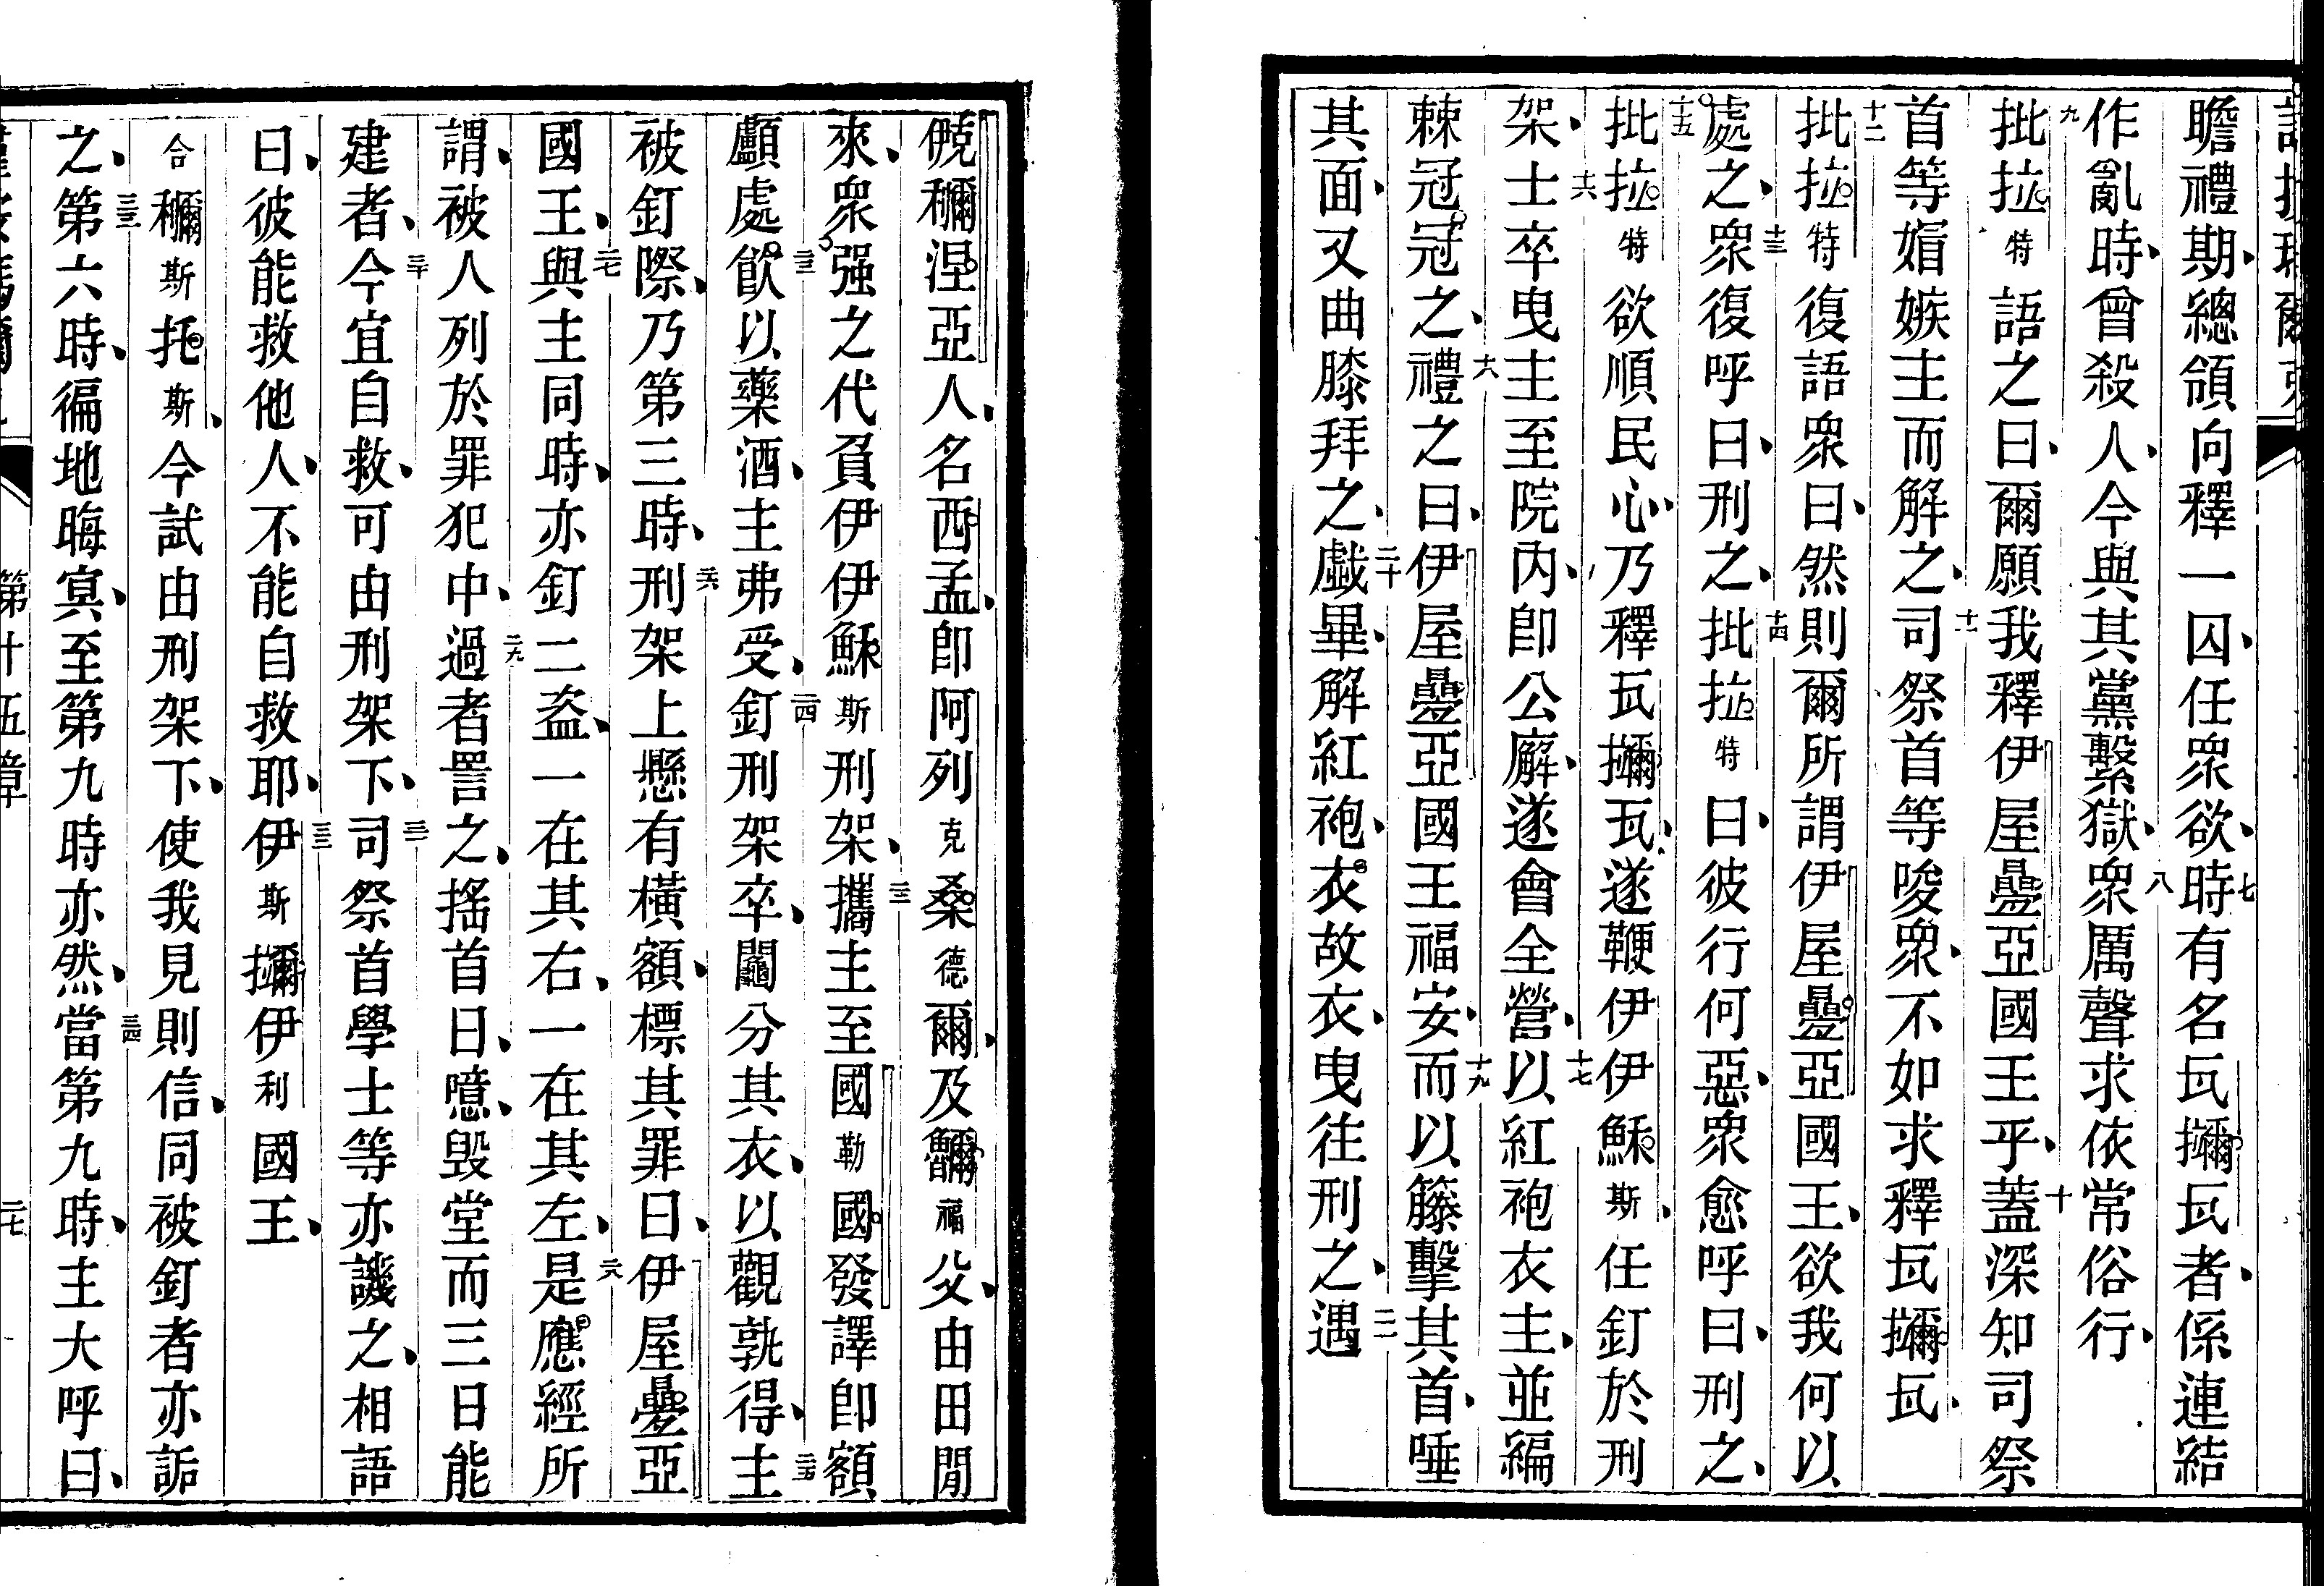 瞻禮期、總領向釋一囚、任衆欲、七時有名瓦𭡝瓦者、係連結
作亂時、曾殺人、今與其黨繫獄、八衆厲聲求依常俗行、
九批拉特語之曰、爾願我釋伊屋亞國王乎、十蓋深知司祭
首等媢嫉主而解之、十一司祭首等唆衆、不如求釋瓦瓦、
十二批拉特復語衆曰、然則爾所謂伊屋亞國王、欲我何以
處之、十三衆復呼曰、刑之、十四批拉特曰、彼行何惡、衆愈呼曰、刑之、
十五批拉特欲順民心、乃釋瓦瓦、遂鞭伊伊穌斯、任釘於刑
架、十六士卒曳主至院內、即公廨、遂會全營、十七以紅袍衣主、並編
棘冠冠之、十八禮之曰、伊屋亞國王福安、十九而以籐擊其首、唾
其面、又曲膝拜之、二十戲畢、解紅袍、衣故衣、曳往刑之、二一遇
涅亞人、名西孟、即阿列克桑德爾、及福父、由田間
來、衆强之代負伊伊穌斯刑架、二二攜主至國勒國發、譯即額
顱處、二三飮以藥酒、主弗受、二四釘刑架卒、鬮分其衣、以觀孰得、二五主
被釘際、乃第三時、二六刑架上懸有橫額、標其罪曰、伊屋亞
國王、二七與主同時、亦釘二盜、一在其右、一在其左、二八是應經所
謂、被人列於罪犯中、二九過者詈之、搖首曰、噫、毁堂而三日能
建者、三十今宜自救、可由刑架下、三一司祭首學士等亦譏之、相語
曰、彼能救他人、不能自救耶、三二伊斯伊利國王、
合斯托斯、今試由刑架下、使我見則信、同被釘者亦詬
之、三三第六時、徧地晦冥、至第九時亦然、三四當第九時、主大呼曰、
第十五章
二七